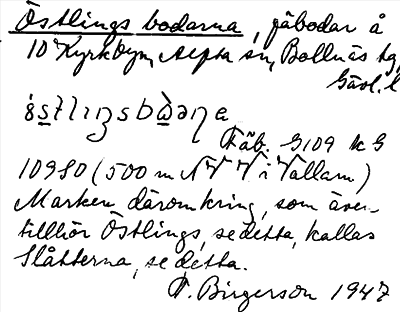 Östlings bodarna, fäbodar å
10 Kyrkbyn, Alfta sn, Bollnäs tg,
Gävl. l
Fäb. G109 k G
10980 (500 m NV i Vallam)
Marken däromkring, som även
tillhör Östlings, se detta, kallas
Slåtterna, se detta.
F. Birgerson 1947